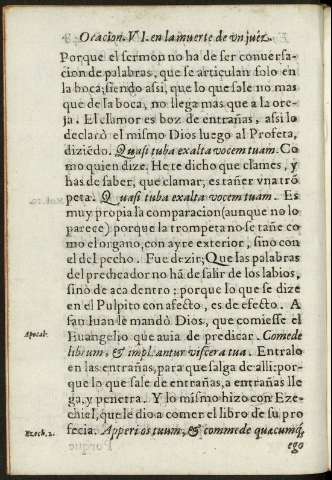 Oracion. VI. en la muerte de vn juez.
Porque el sermon no ha de ser conuersa-
cion de palabras, que se articulan solo en
la boca; siendo assi, que lo que sale no mas
que de la boca, no llega mas que a la ore-
ja. El clamor es boz de entrañas, assi lo
declarò el mismo Dios luego al Profeta,
diziẽdo. Quasi tuba exalta vocem tuam. Co
mo quien dize. He te dicho que clames, y
has de saber, que clamar, es tañer vna trõ
peta. Quasi tuba exalta vocem tuam. Es
muy propia la comparacion (aunque no lo
parece) porque la trompeta no se tañe co
mo el organo, con ayre exterior, sino con
el del pecho. Fue dezir; Que las palabras
del predicador no hã de salir de los labios,
sino de aca dentro: porque lo que se dize
en el Pulpito con afecto, es de efecto. A
san Iuan le mandò Dios, que comiesse el
Apocal.
Euangelio que auia de predicar. Comede
librum, & implēantur viscera tua. Entralo
en las entrañas, para que salga de alli: por-
que lo que sale de entrañas, a entrañas lle
ga, y penetra. Y lo mismo hizo con Eze-
chiel, que le dio a comer el libro de su pro
Ezech. 2.
fecia. Apperi os tuum, & commede quæcumq;
ego